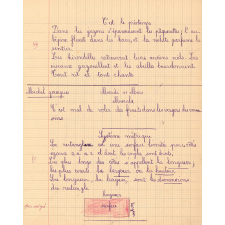 C'est le printemps
Dans les gazons s'épanouissent les pâquerettes; l'au-
bépine fleurit dans les bois, et la violette parfume le
sentier.
Les hirondelles retrouvent leurs anciens nids. Les
oiseaux gazouillent et les abeilles bourdonnent.
Tout rit et tout chante.
Mardi
Morale
Il est mal de voler des fruits dans les vergers
Système métrique
Le rectangle est une surface formée par 4 côtés
égaux 2 à 2 et dont les angles sont droits.
Le plus long des côtés s'appelle la longueur,
le plus court la largeur ou la hauteur.
La longueur, la largeur, sont les dimensions
du rectangle.
longueur